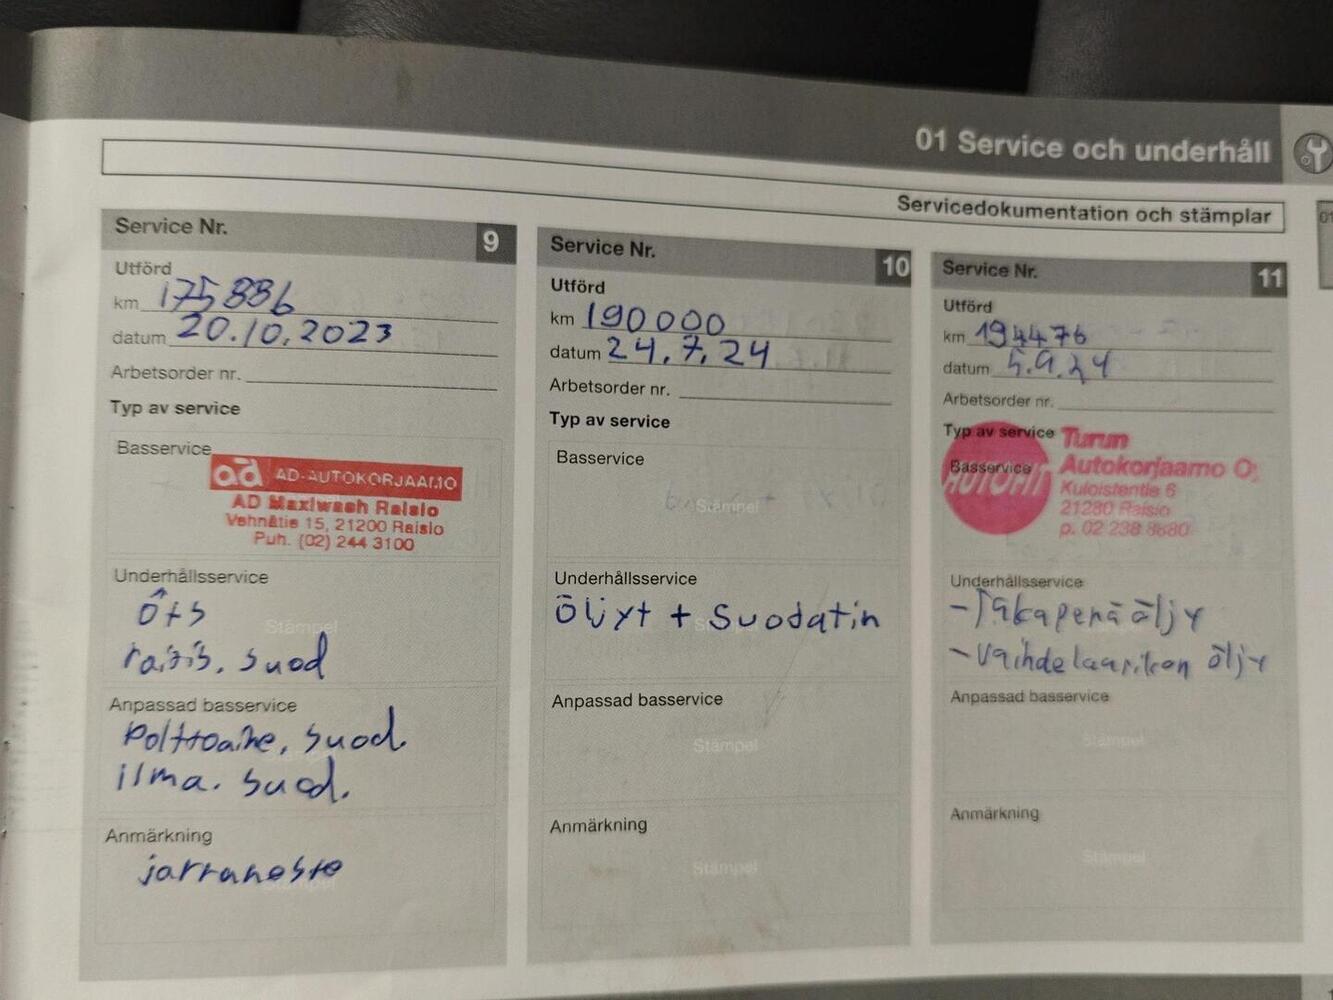 01 Service och underhåll
Servicedokumentation och stämplar
01
Service Nr. 9
Utförd
km 175886
datum 20.10.2023
Arbetsorder nr.
Typ av service
Basservice
ad AD-AUTOKORJAAMO
AD Maxiwash Raisio
Vahnätie 15, 21200 Raisio
Puh. (02) 244 3100
Underhållsservice
Stämpel
raitis. suod
Anpassad basservice
Polttoaine. suod.
ilma. suod.
Anmärkning
jarruneste
Stämpel
Service Nr. 10
Utförd
km 190000
datum 24.7.24
Arbetsorder nr.
Typ av service
Basservice
Stämpel
Underhållsservice
Öljyt + Suodatin
Stämpel
Anpassad basservice
Stämpel
Anmärkning
Stämpel
Service Nr. 11
Utförd
km 194476
datum 5.9.24
Arbetsorder nr.
Typ av service
Basservice
AUTOFIT
Turun
Autokorjaamo O
Kuloistentie 6
21280 Raisio
p. 02 238 8680
Underhållsservice
- Takaperä öljy
- Vaihdelaatikon öljy
Anpassad basservice
Stämpel
Anmärkning
Stämpel